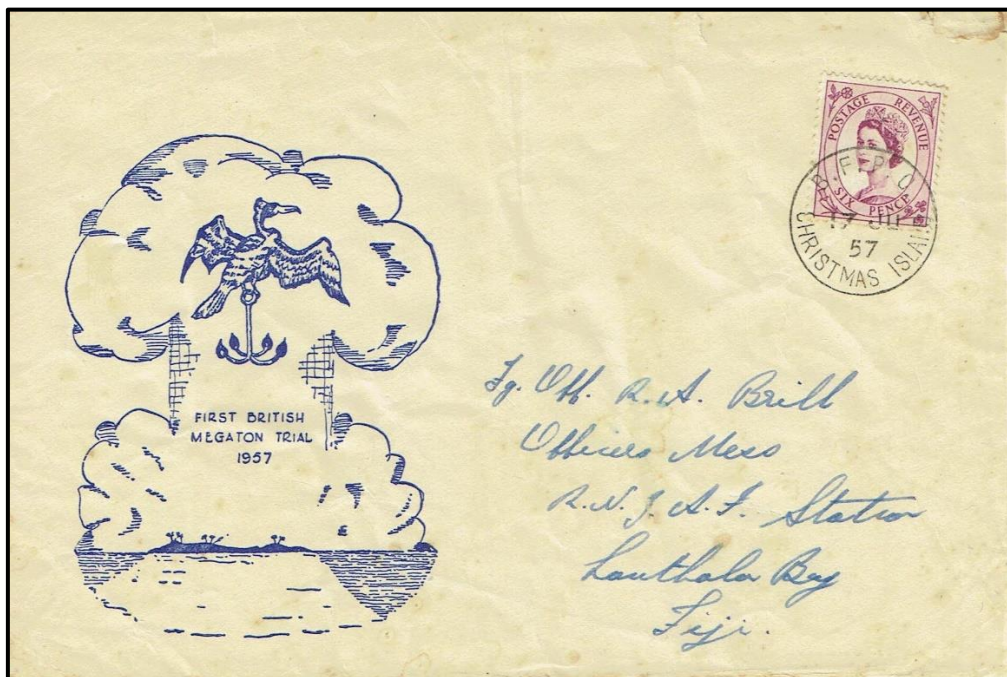 POSTAGE REVENUE
SIX PENCE
B.F.P.O
57
CHRISTMAS ISLAND
FIRST BRITISH
MEGATON TRIAL
1957
Fg. Off. R. A. Brill
Officers Mess
R.N.Z.A.F. Station
Lauthala Bay
Fiji.